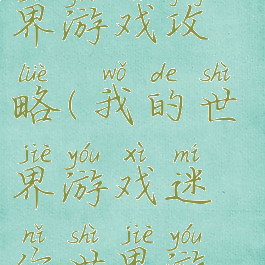 界游戏攻
lüè wǒ de shì
略(我的世
jiè yóu xì mí
界游戏迷
nǐ shì jiè yóu
你世界游